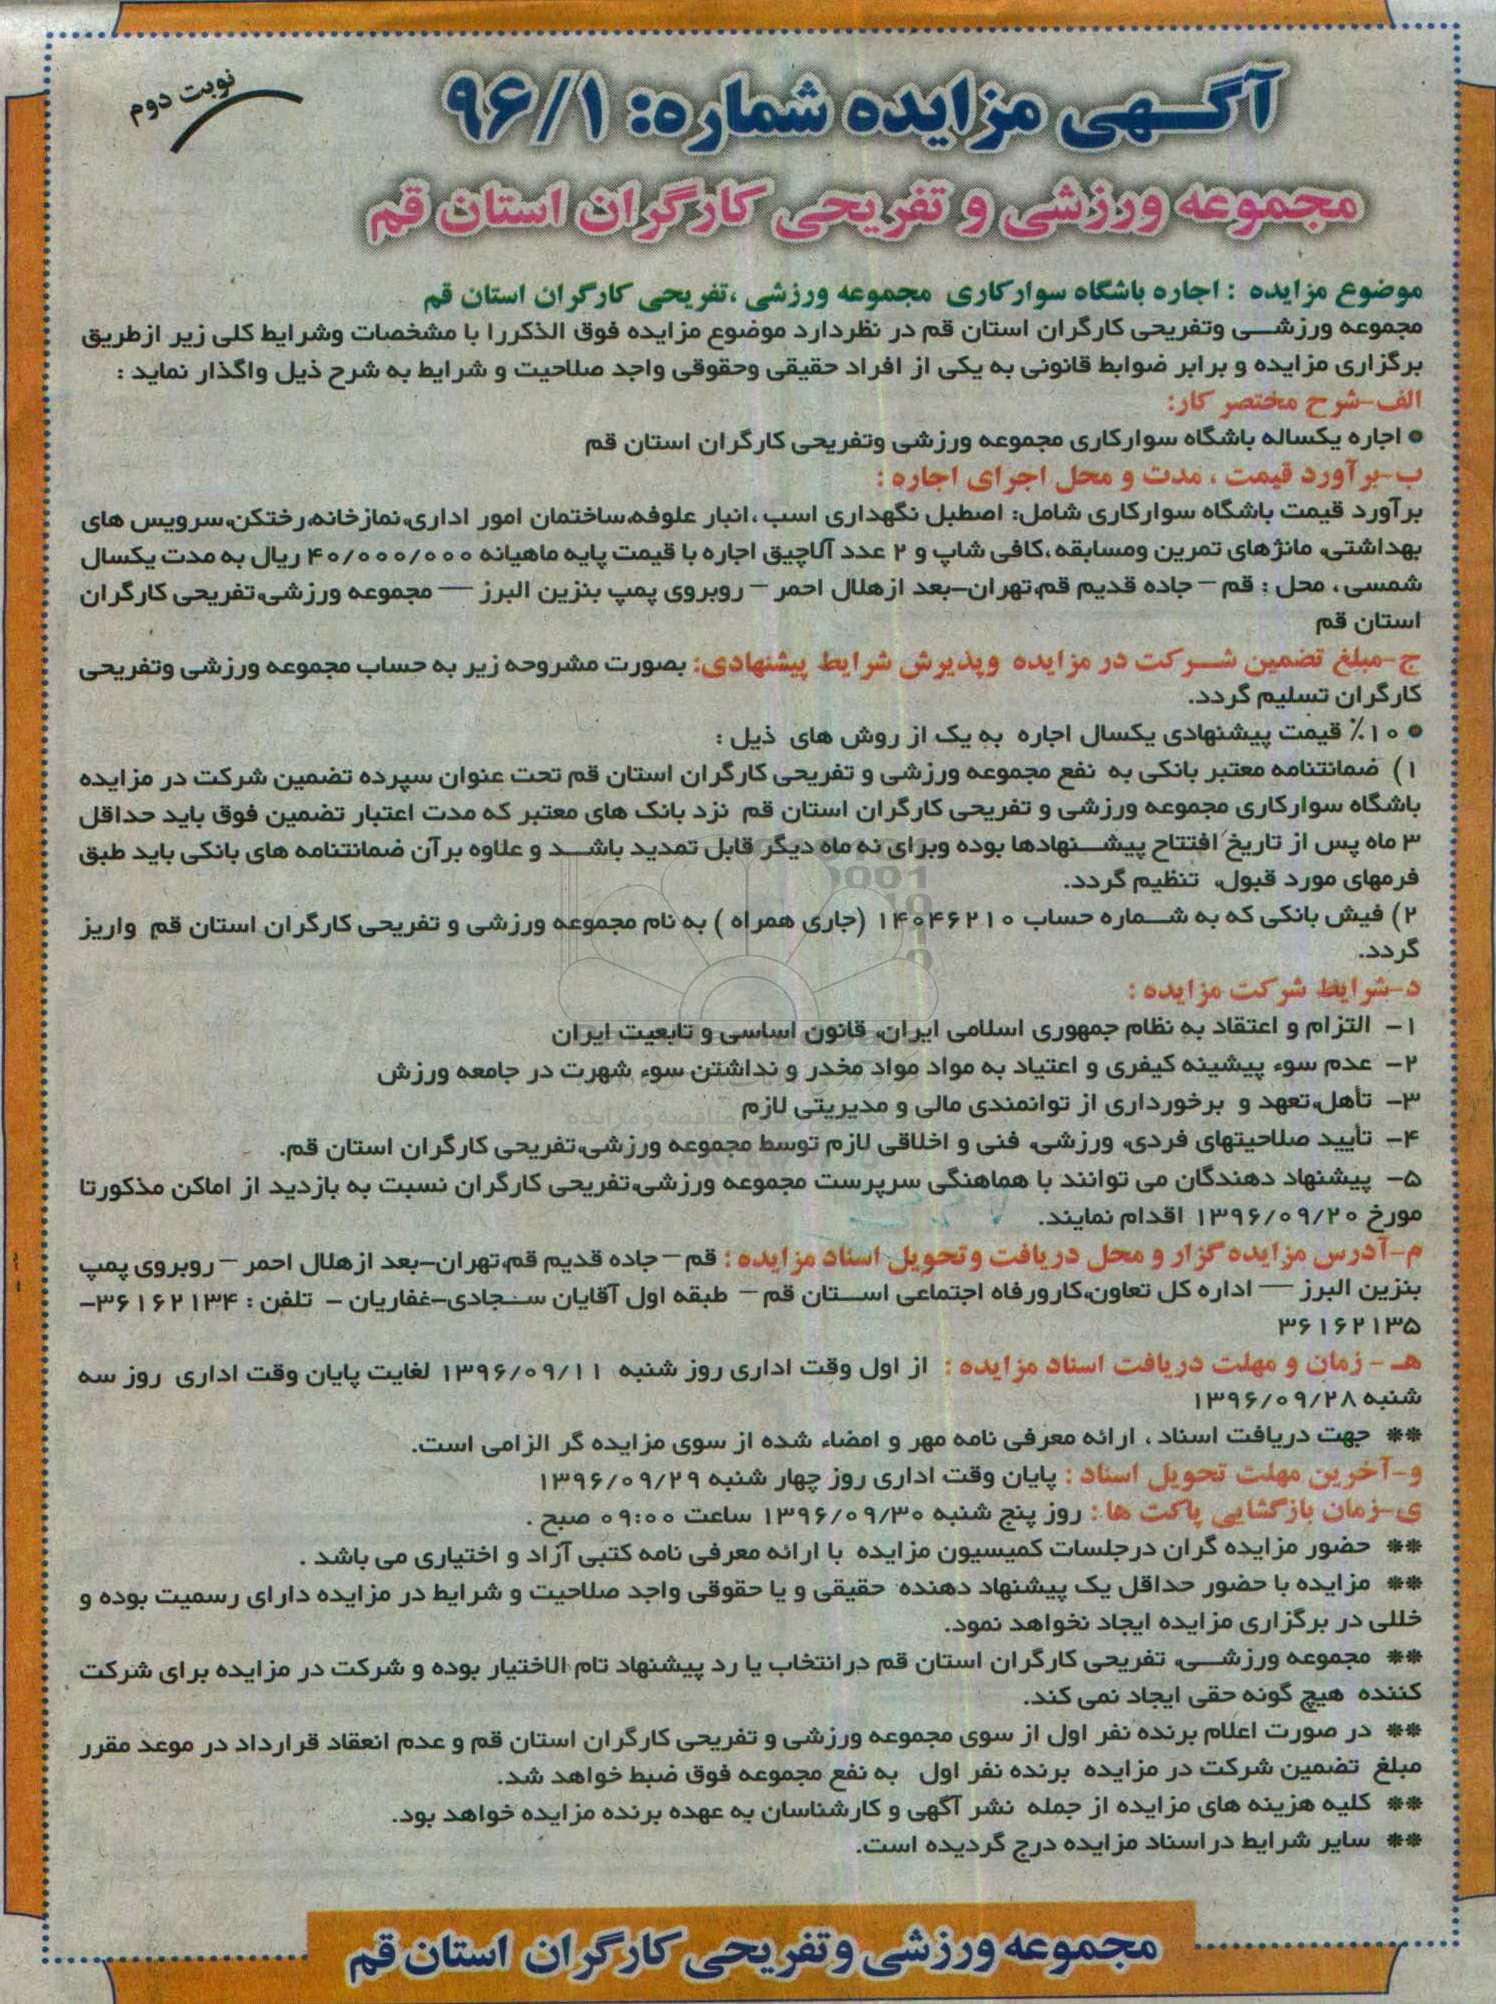 نوبت دوم
آگهی مزایده شماره: ۹۶/۱
مجموعه ورزشی و تفریحی کارگران استان قم
موضوع مزایده : اجاره باشگاه سوارکاری مجموعه ورزشی ،تفریحی کارگران استان قم
مجموعه ورزشی وتفریحی کارگران استان قم در نظردارد موضوع مزایده فوق الذکررا با مشخصات وشرایط کلی زیر ازطریق
برگزاری مزایده و برابر ضوابط قانونی به یکی از افراد حقیقی وحقوقی واجد صلاحیت و شرایط به شرح ذیل واگذار نماید :
الف-شرح مختصر کار:
• اجاره یکساله باشگاه سوارکاری مجموعه ورزشی وتفریحی کارگران استان قم
ب-برآورد قیمت ، مدت و محل اجرای اجاره :
برآورد قیمت باشگاه سوارکاری شامل: اصطبل نگهداری اسب ،انبار علوفه،ساختمان امور اداری،نمازخانه،رختکن،سرویس های
بهداشتی، مانژهای تمرین ومسابقه ،کافی شاپ و ۲ عدد آلاچیق اجاره با قیمت پایه ماهیانه ۴۰/۰۰۰/۰۰۰ ریال به مدت یکسال
شمسی ، محل : قم – جاده قدیم قم،تهران–بعد ازهلال احمر – روبروی پمپ بنزین البرز — مجموعه ورزشی،تفریحی کارگران
استان قم
ج-مبلغ تضمین شرکت در مزایده وپذیرش شرایط پیشنهادی: بصورت مشروحه زیر به حساب مجموعه ورزشی وتفریحی
کارگران تسلیم گردد.
• ۱۰٪ قیمت پیشنهادی یکسال اجاره به یک از روش های ذیل :
۱) ضمانتنامه معتبر بانکی به نفع مجموعه ورزشی و تفریحی کارگران استان قم تحت عنوان سپرده تضمین شرکت در مزایده
باشگاه سوارکاری مجموعه ورزشی و تفریحی کارگران استان قم نزد بانک های معتبر که مدت اعتبار تضمین فوق باید حداقل
۳ ماه پس از تاریخ افتتاح پیشنهادها بوده وبرای نه ماه دیگر قابل تمدید باشد و علاوه برآن ضمانتنامه های بانکی باید طبق
فرمهای مورد قبول، تنظیم گردد.
۲) فیش بانکی که به شماره حساب ۱۴۰۴۶۲۱۰ (جاری همراه ) به نام مجموعه ورزشی و تفریحی کارگران استان قم واریز
گردد.
د-شرایط شرکت مزایده :
۱- التزام و اعتقاد به نظام جمهوری اسلامی ایران، قانون اساسی و تابعیت ایران
۲- عدم سوء پیشینه کیفری و اعتیاد به مواد مواد مخدر و نداشتن سوء شهرت در جامعه ورزش
۳- تأهل،تعهد و برخورداری از توانمندی مالی و مدیریتی لازم
۴- تأیید صلاحیتهای فردی، ورزشی، فنی و اخلاقی لازم توسط مجموعه ورزشی،تفریحی کارگران استان قم.
۵- پیشنهاد دهندگان می توانند با هماهنگی سرپرست مجموعه ورزشی،تفریحی کارگران نسبت به بازدید از اماکن مذکورتا
مورخ ۱۳۹۶/۰۹/۲۰ اقدام نمایند.
م-آدرس مزایده گزار و محل دریافت وتحویل اسناد مزایده : قم – جاده قدیم قم،تهران–بعد ازهلال احمر – روبروی پمپ
بنزین البرز — اداره کل تعاون،کارورفاه اجتماعی استان قم – طبقه اول آقایان سجادی-غفاریان – تلفن : ۳۶۱۶۲۱۳۴-
۳۶۱۶۲۱۳۵
هـ - زمان و مهلت دریافت اسناد مزایده : از اول وقت اداری روز شنبه ۱۳۹۶/۰۹/۱۱ لغایت پایان وقت اداری روز سه
شنبه ۱۳۹۶/۰۹/۲۸
** جهت دریافت اسناد ، ارائه معرفی نامه مهر و امضاء شده از سوی مزایده گر الزامی است.
و-آخرین مهلت تحویل اسناد : پایان وقت اداری روز چهار شنبه ۱۳۹۶/۰۹/۲۹
ی-زمان بازگشایی پاکت ها : روز پنج شنبه ۱۳۹۶/۰۹/۳۰ ساعت ۰۹:۰۰ صبح .
** حضور مزایده گران درجلسات کمیسیون مزایده با ارائه معرفی نامه کتبی آزاد و اختیاری می باشد .
** مزایده با حضور حداقل یک پیشنهاد دهنده حقیقی و یا حقوقی واجد صلاحیت و شرایط در مزایده دارای رسمیت بوده و
خللی در برگزاری مزایده ایجاد نخواهد نمود.
** مجموعه ورزشی، تفریحی کارگران استان قم درانتخاب یا رد پیشنهاد تام الاختیار بوده و شرکت در مزایده برای شرکت
کننده هیچ گونه حقی ایجاد نمی کند.
** در صورت اعلام برنده نفر اول از سوی مجموعه ورزشی و تفریحی کارگران استان قم و عدم انعقاد قرارداد در موعد مقرر
مبلغ تضمین شرکت در مزایده برنده نفر اول به نفع مجموعه فوق ضبط خواهد شد.
** کلیه هزینه های مزایده از جمله نشر آگهی و کارشناسان به عهده برنده مزایده خواهد بود.
** سایر شرایط دراسناد مزایده درج گردیده است.
مجموعه ورزشی وتفریحی کارگران استان قم